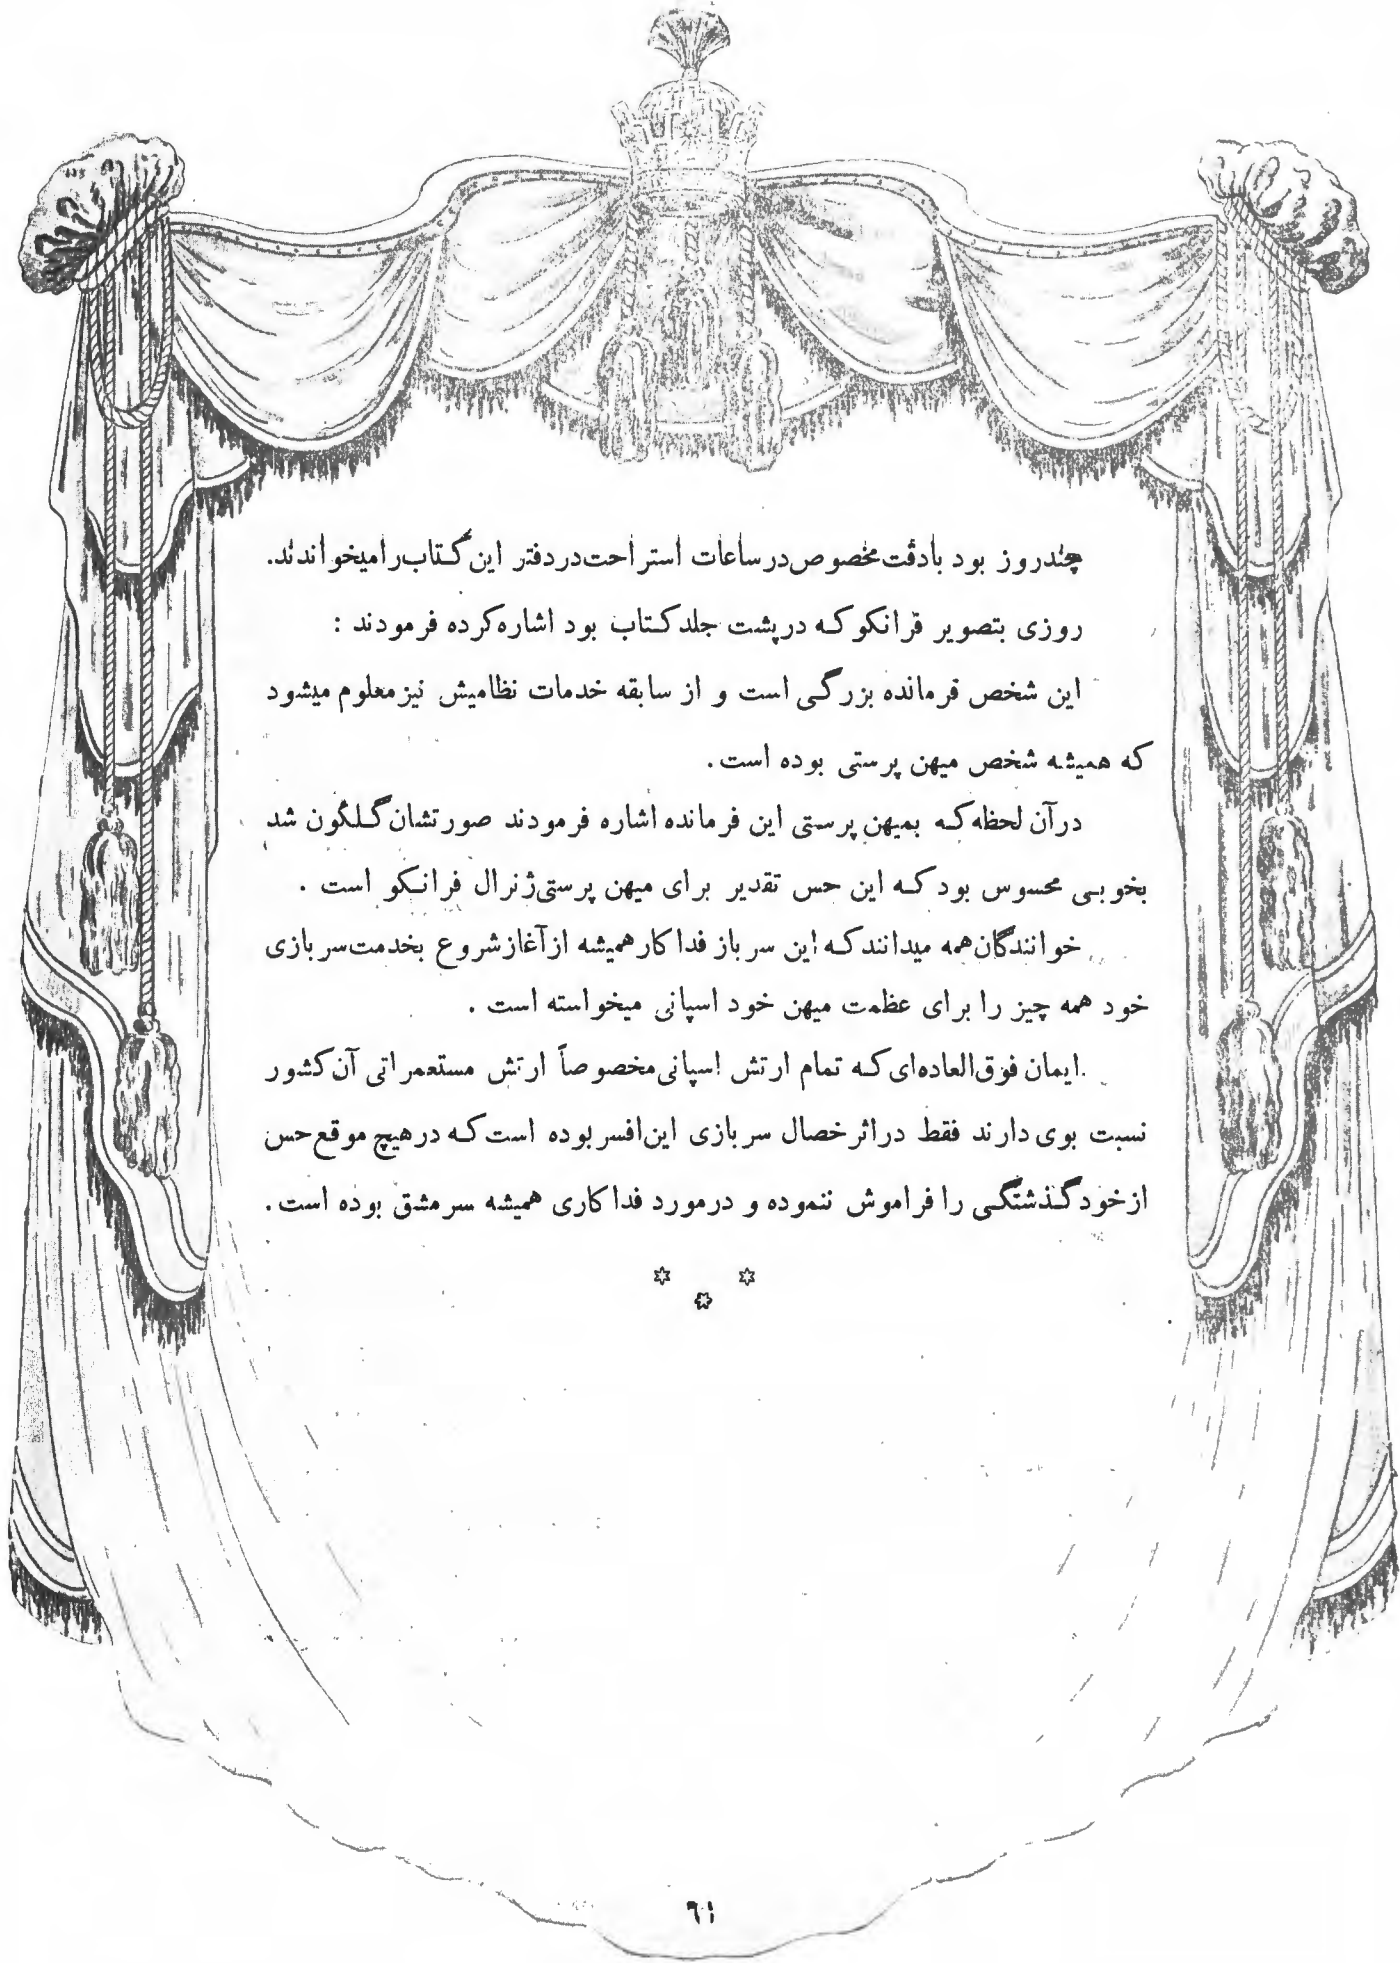 چندروز بود بادقت مخصوص در ساعات استراحت در دفتر این کتاب را میخواندند.
روزی بتصویر فرانکو که در پشت جلد کتاب بود اشاره کرده فرمودند :
این شخص فرمانده بزرگی است و از سابقه خدمات نظامیش نیز معلوم میشود
که همیشه شخص میهن پرستی بوده است .
در آن لحظه که بمیهن پرستی این فرمانده اشاره فرمودند صورتشان گلگون شد
بخوبی محسوس بود که این حس تقدیر برای میهن پرستی ژنرال فرانکو است .
خوانندگان همه میدانند که این سرباز فداکار همیشه از آغاز شروع بخدمت سربازی
خود همه چیز را برای عظمت میهن خود اسپانی میخواسته است .
ایمان فوق العاده ای که تمام ارتش اسپانی مخصوصاً ارتش مستعمراتی آن کشور
نسبت بوی دارند فقط در اثر خصال سربازی این افسر بوده است که در هیچ موقع حس
از خود گذشتگی را فراموش ننموده و در مورد فداکاری همیشه سرمشق بوده است .
* * *
٦١